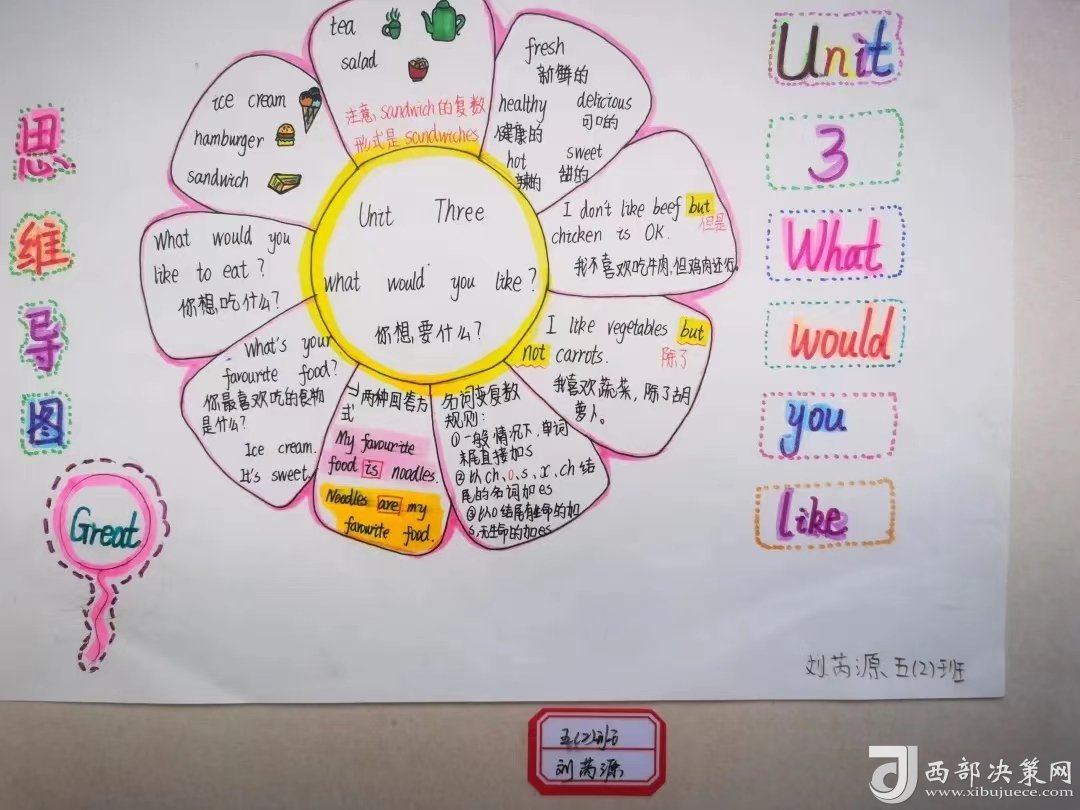 思
维
导
图
Great
tea
salad
注意, sandwich的复数
形式是 sandwiches
fresh
新鲜的
healthy delicious
健康的 可口的
hot sweet
辣的 甜的
I don't like beef but
但是
chicken is OK.
我不喜欢吃牛肉,但鸡肉还行。
I like vegetables but
not carrots.
除了
我喜欢蔬菜，除了胡
萝卜。
名词变复数
规则:
①一般情况下,单词
末尾直接加s
②以ch、o、s、x、ch结
尾的名词加es
③以o结尾有生命的加
s,无生命的加es
两种回答方
式
My favourite
food is noodles.
Noodles are my
favourite food.
What's your
favourite food?
你最喜欢吃的食物
是什么?
Ice cream.
It's sweet.
What would you
like to eat?
你想吃什么?
ice cream
hamburger
sandwich
Unit Three
what would you like?
你想要什么?
Unit
3
What
would
you
like
刘芮源 五(2)班
五(2)班
刘芮源
西部决策网
www.xibujuece.com